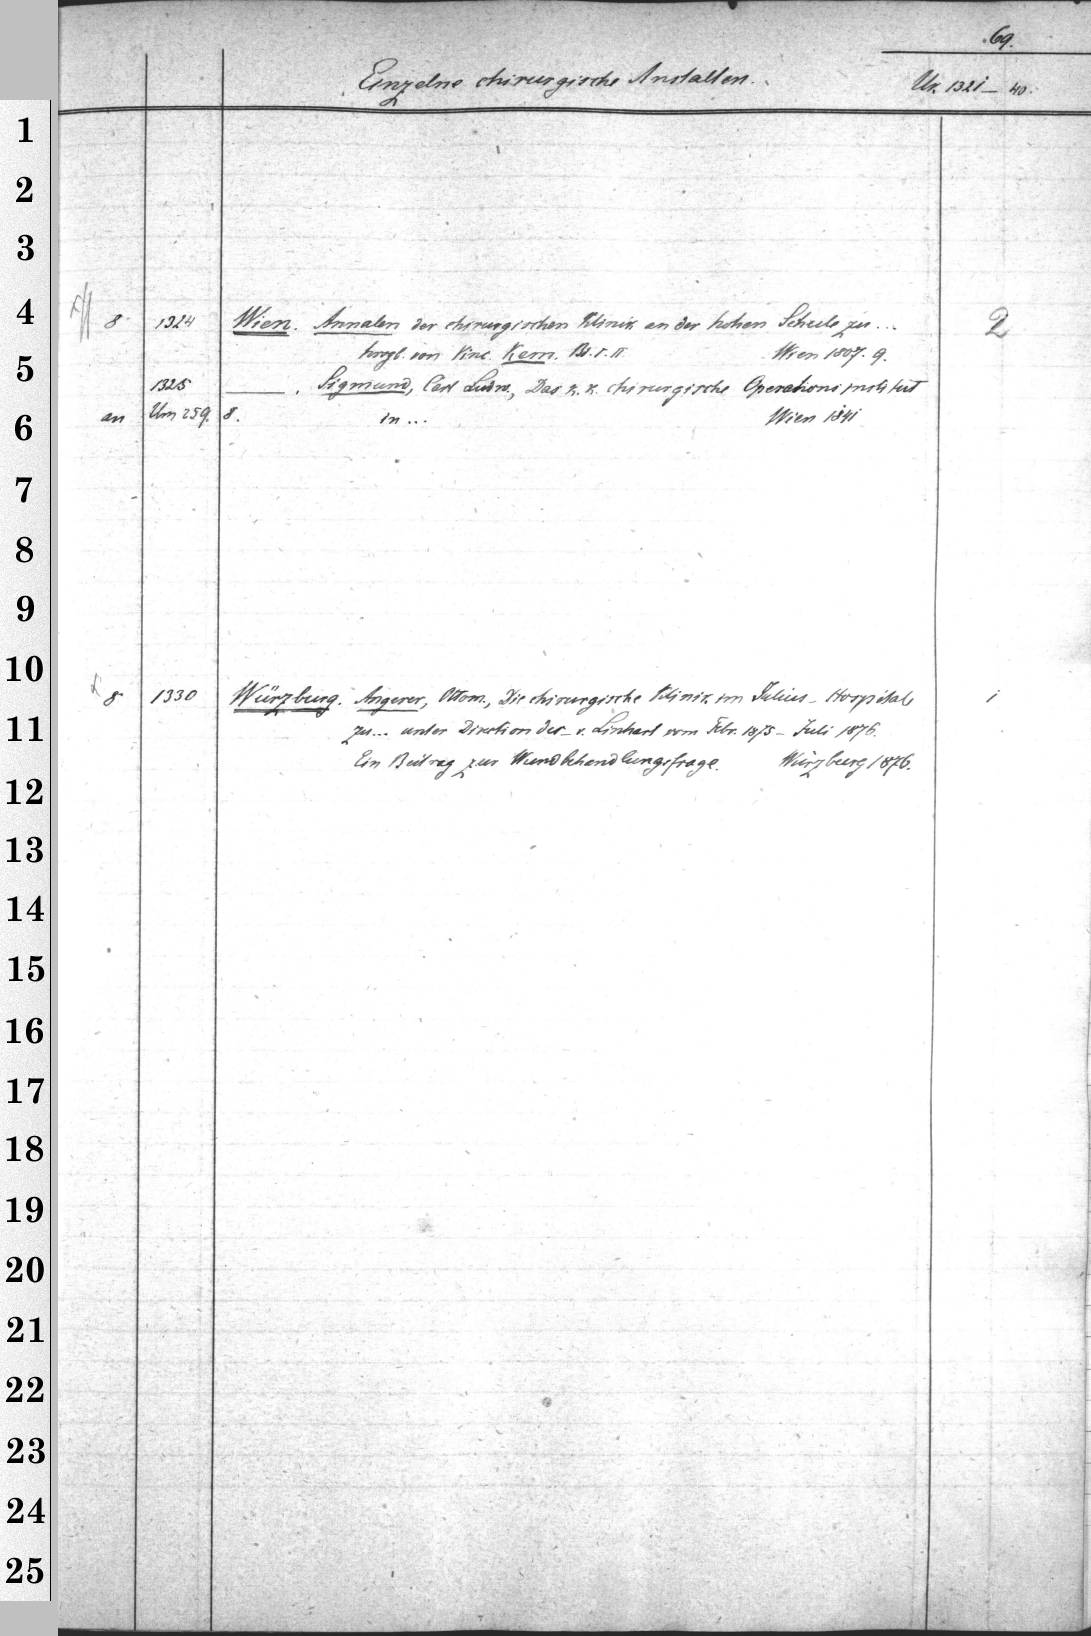 69.
Einzelne chirurgische Anstalten.
Uk. 1321 — 40.
1
2
3
4
8 1324 Wien. Annalen der chirurgischen Klinik an der hohen Schule zu ... 2
hrsgl. von Vinc. Kern. Bd. I. II. Wien 1807. 9.
5
1325 ——. Sigmund, Carl Ludw., Das k. k. chirurgische Operationsinstitut
an Um 259. 8. in ... Wien 1841
6
7
8
9
10
8 1330 Würzburg. Angerer, Ottom., Die chirurgische Klinik im Julius-Hospitale 1
11
zu ... unter Direction des - v. Linhart vom Febr. 1875 - Juli 1876.
Ein Beitrag zur Wundbehandlungsfrage. Würzburg 1876.
12
13
14
15
16
17
18
19
20
21
22
23
24
25